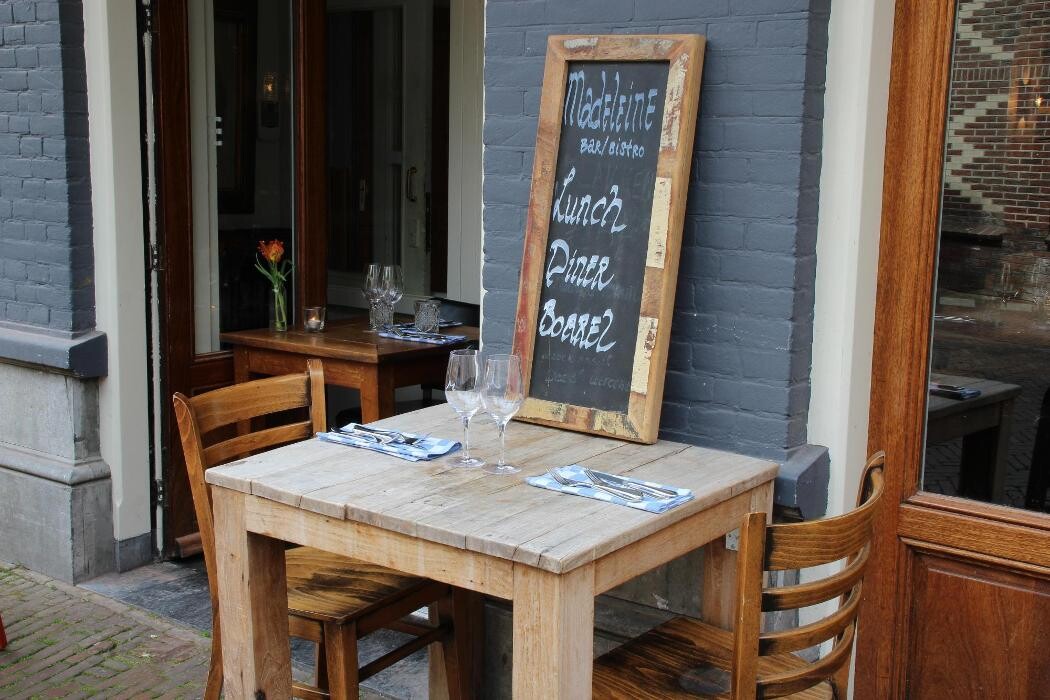 Madeleine
Bar/Bistro
Lunch
Diner
Borrel